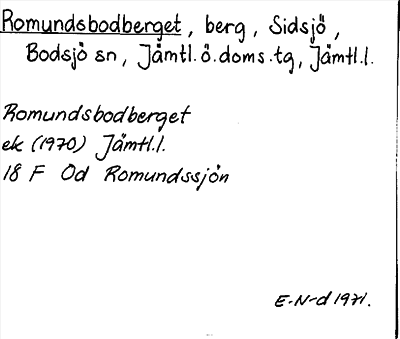 Romundsbodberget, berg, Sidsjö,
Bodsjö sn, Jämtl. ö. doms. tg, Jämtl. l.
Romundsbodberget
ek (1970) Jämtl. l.
18 F Od Romundssjön
E-N-d 1971.